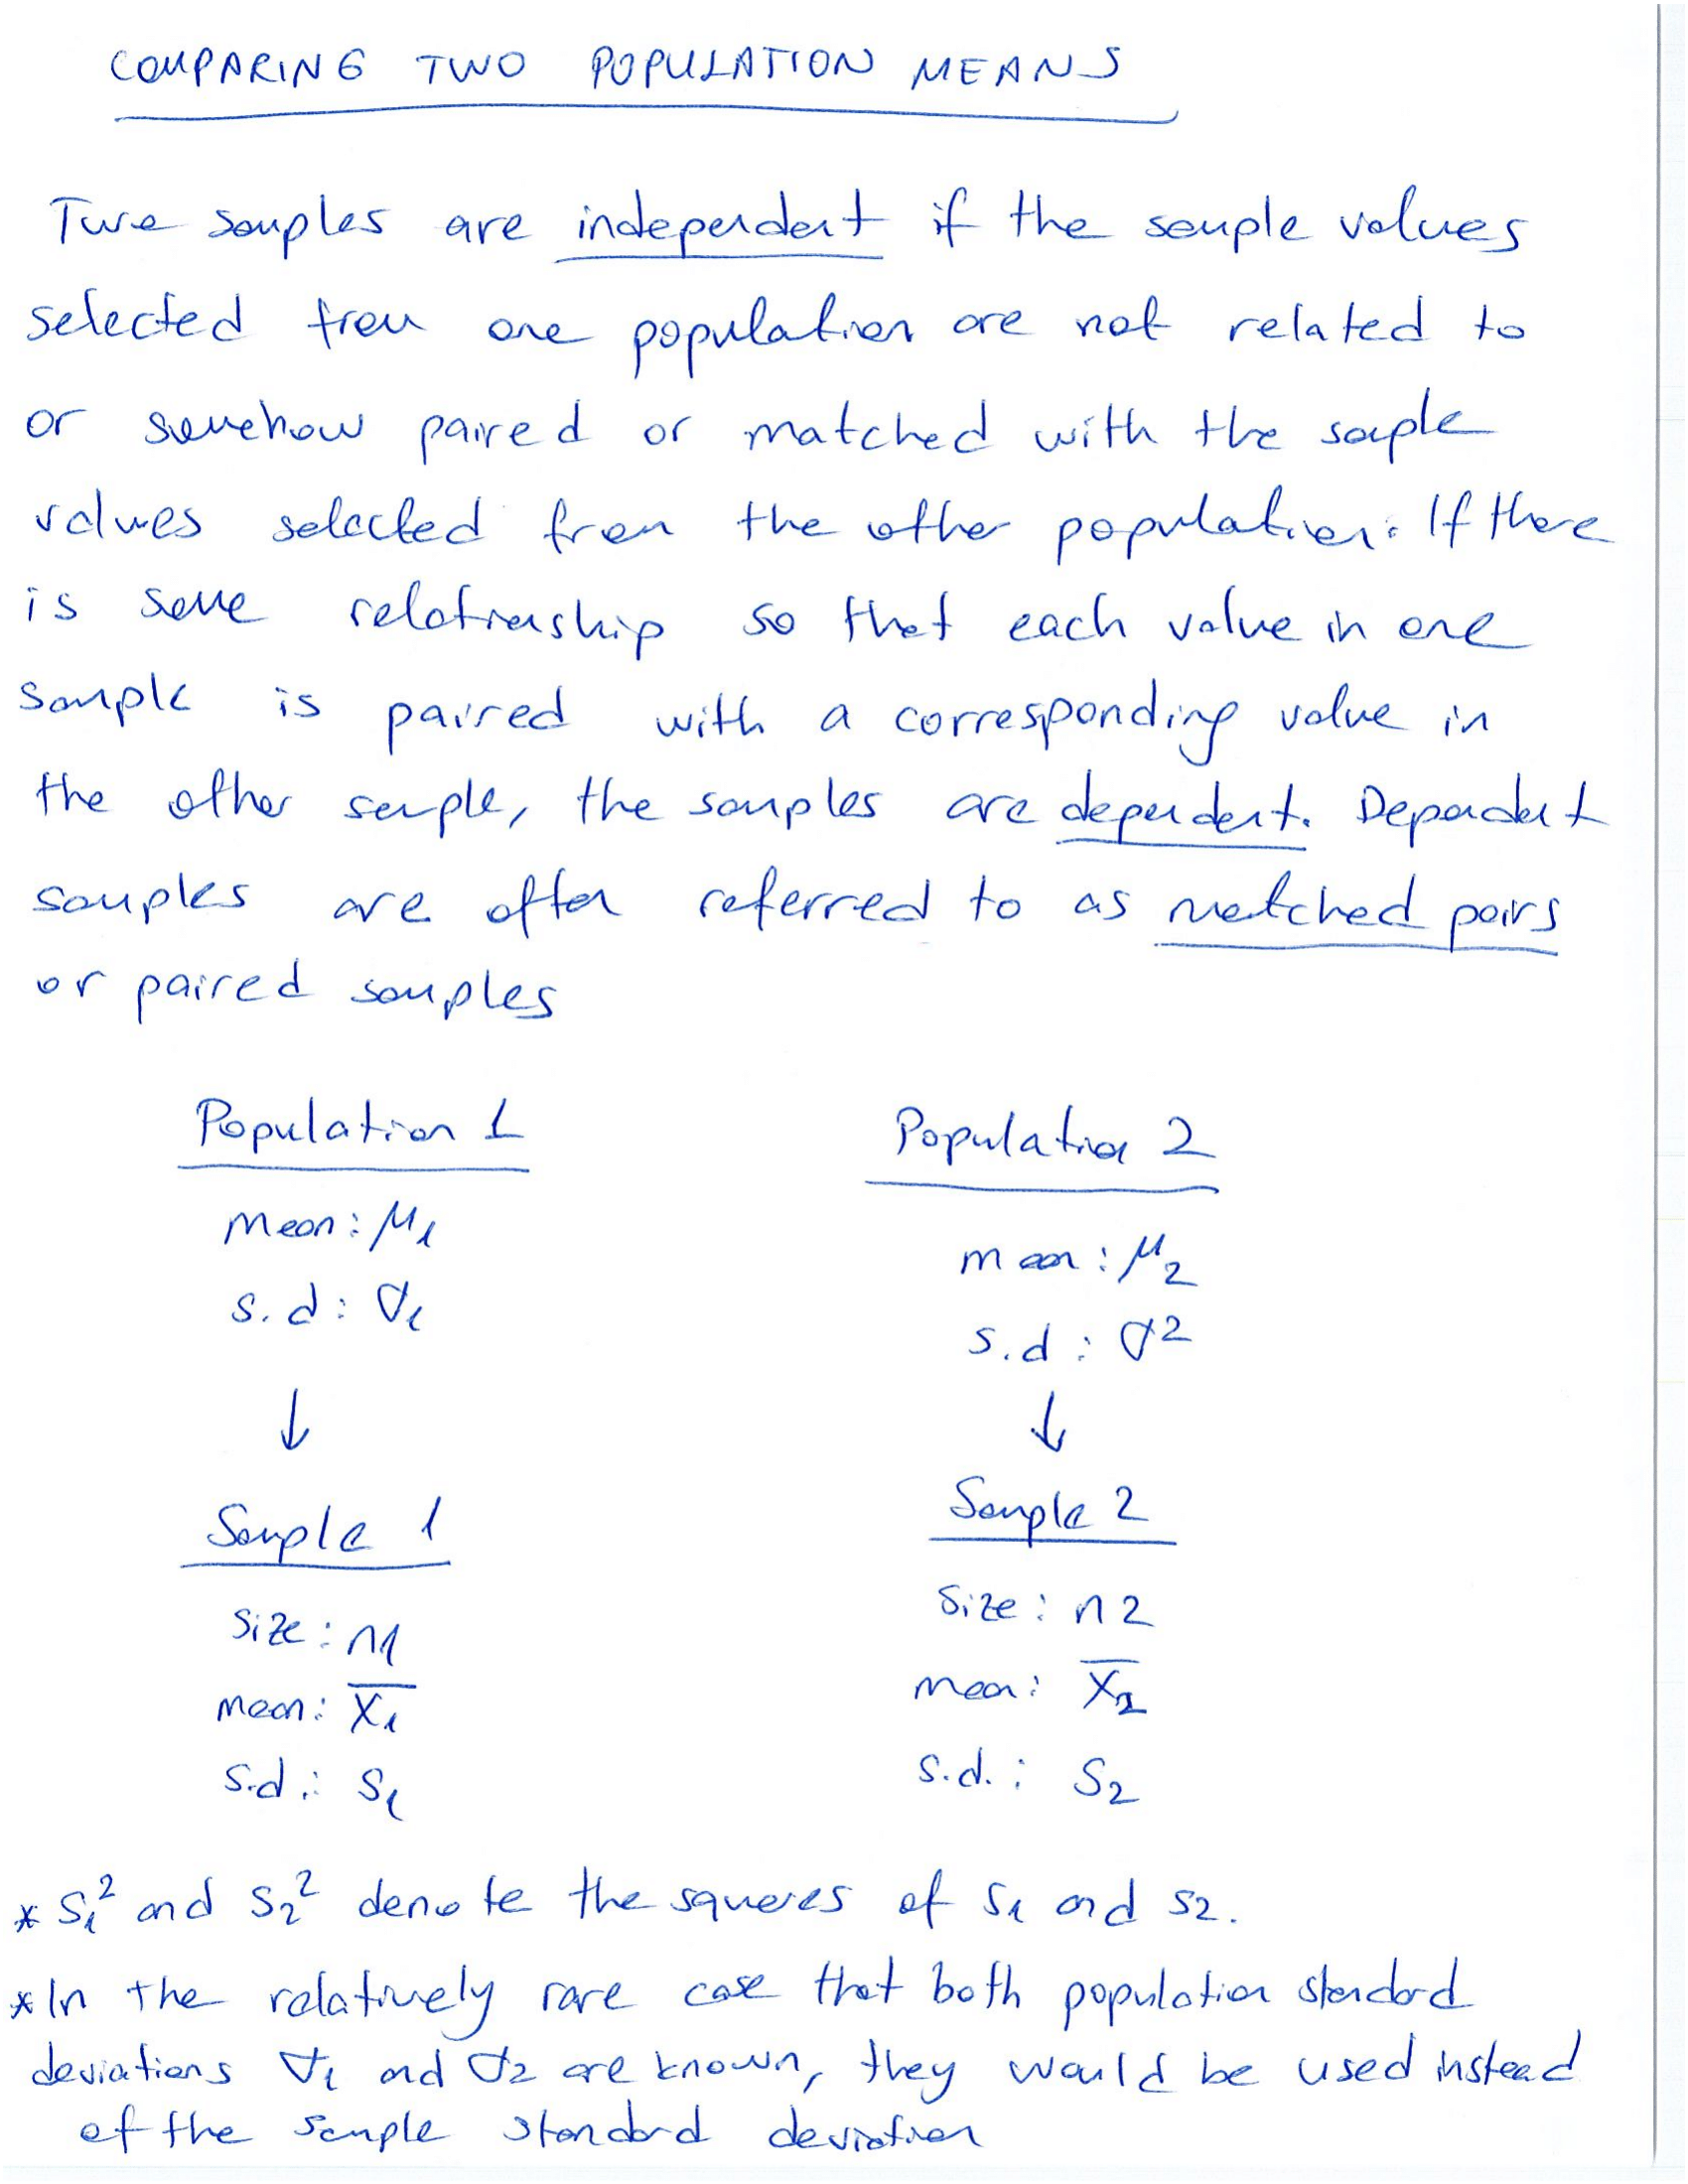 COMPARING TWO POPULATION MEANS
Two samples are independent if the sample values
selected from one population are not related to
or somehow paired or matched with the sample
values selected from the other population. If there
is some relationship so that each value in one
sample is paired with a corresponding value in
the other sample, the samples are dependent. Dependent
samples are often referred to as matched pairs
or paired samples
Population 1
mean: μ₁
s.d: σ₁
↓
Sample 1
size: n1
mean: x̄₁
s.d.: s₁
Population 2
mean: μ₂
s.d: σ2
↓
Sample 2
size: n2
mean: x̄₂
s.d.: s₂
* s₁² and s₂² denote the squares of s₁ and s₂.
* In the relatively rare case that both population standard
deviations σ₁ and σ₂ are known, they would be used instead
of the sample standard deviation